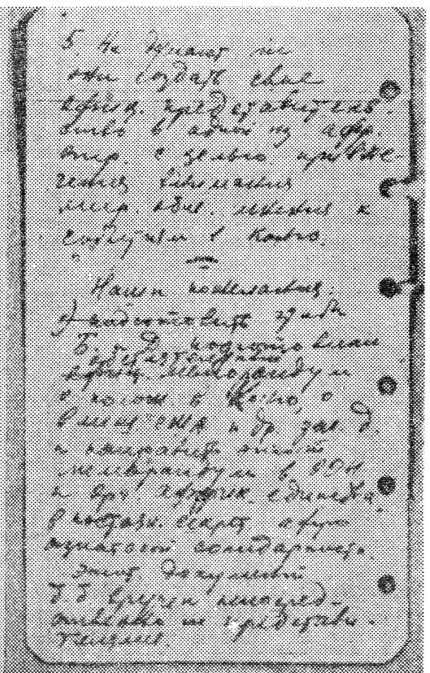 5. Не думают ли
они создать свое
африк. представительс-
тво в одной из афр.
стр. с целью привле-
чения внимания
мир. общ. мнения к
событиям в Конго.
Наши пожелания:
подготовить
Б. и Д. подготовили
меморандум
о полож. в Конго, о
вмеш. США и др. зап. д.
и направить этот
меморандум в ООН
и орг. африк. единства,
секрет. афро
азиатской солидарности.
Этот документ
б. б. вручен непосред-
ственно их представи-
телями.